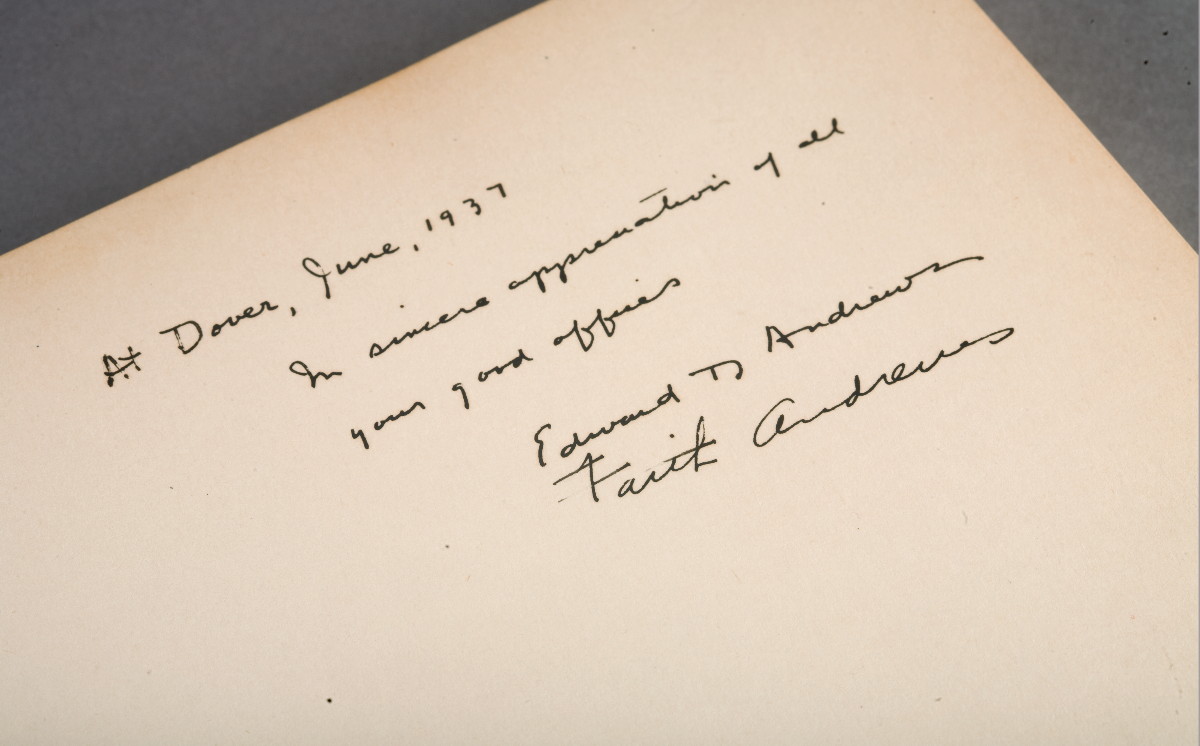 At Dover, June, 1937
In sincere appreciation of all
your good offices
Edward D Andrews
Faith Andrews